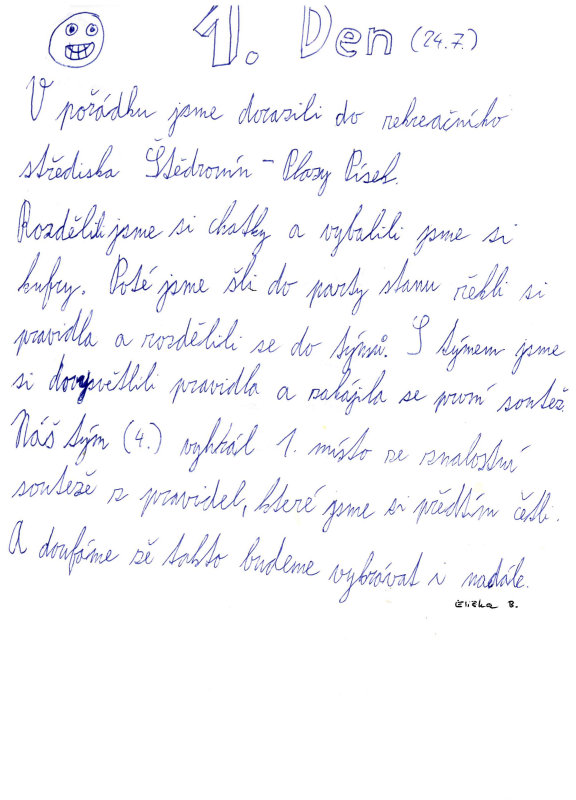 1. Den (24.7.)
V pořádku jsme dorazili do rekreačního
střediska Štědronín - Plazy Písek.
Rozdělili jsme si chatky a vybalili jsme si
kufry. Poté jsme šli do party stanu řekli si
pravidla a rozdělili se do týmů. S týmem jsme
si dovysvětlili pravidla a zahájila se první soutěž.
Náš tým (4.) vyhrál 1. místo ze znalostní
soutěže z pravidel, které jsme si předtím četli.
A doufáme že takto budeme vyhrávat i nadále.
Eliška B.